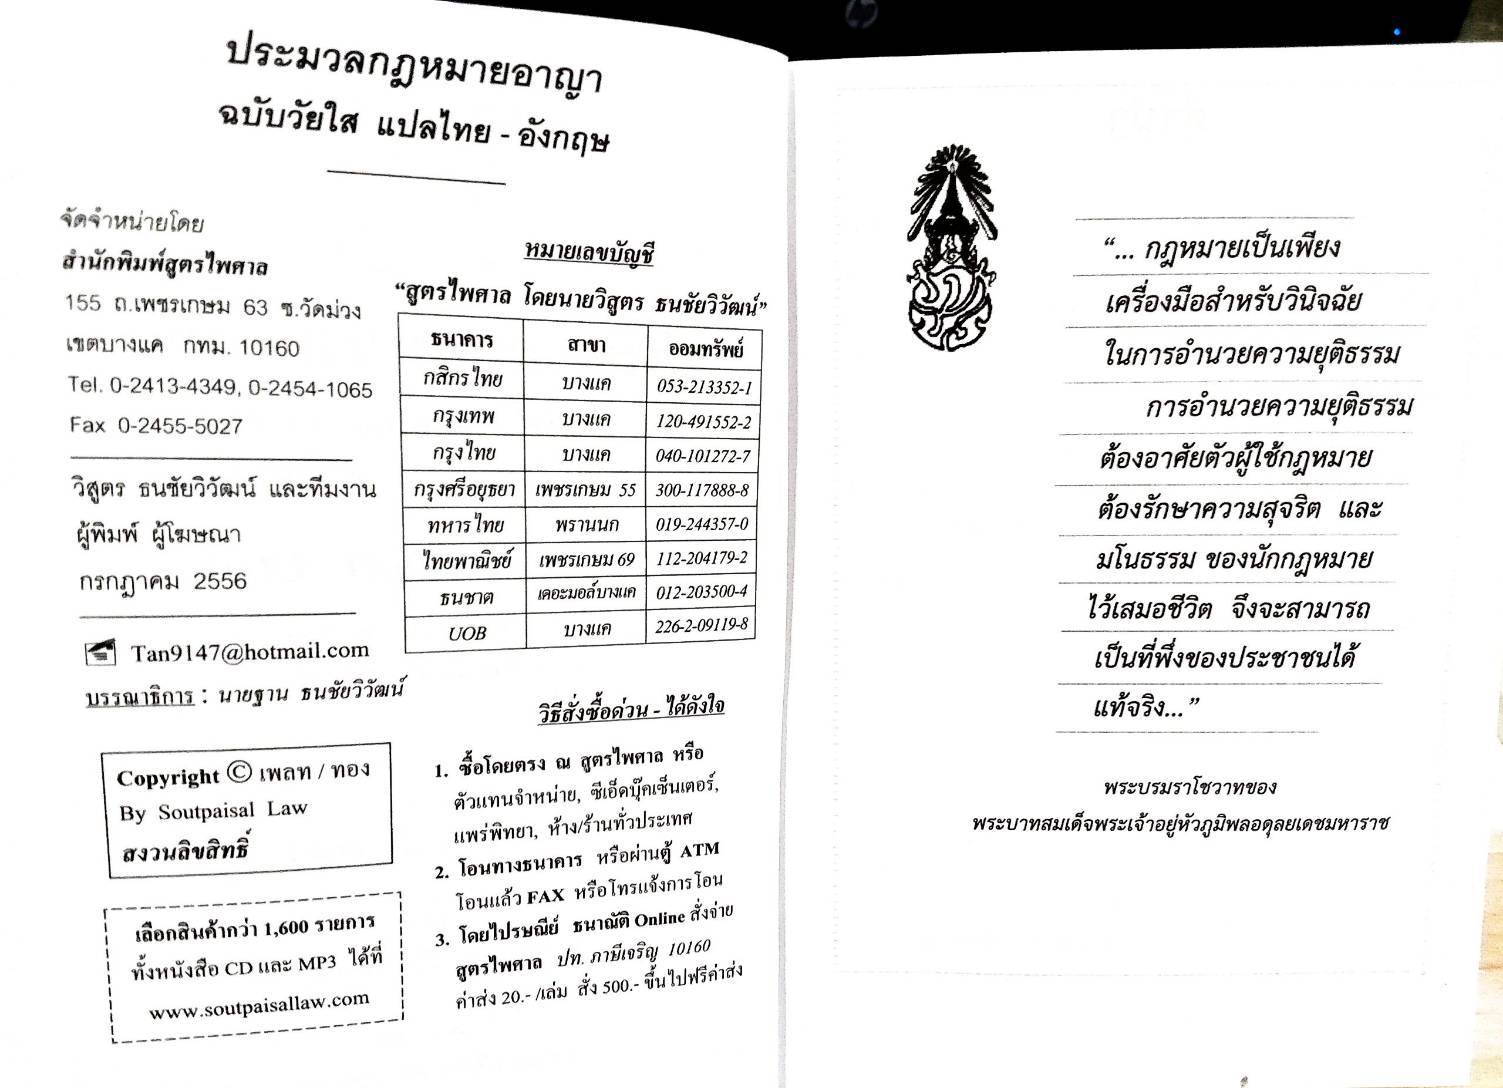 ประมวลกฎหมายอาญา
ฉบับวัยใส แปลไทย - อังกฤษ
จัดจำหน่ายโดย
สำนักพิมพ์สูตรไพศาล
155 ถ.เพชรเกษม 63 ซ.วัดม่วง
เขตบางแค กทม. 10160
Tel. 0-2413-4349, 0-2454-1065
Fax 0-2455-5027
วิสูตร ธนชัยวิวัฒน์ และทีมงาน
ผู้พิมพ์ ผู้โฆษณา
กรกฎาคม 2556
Tan9147@hotmail.com
บรรณาธิการ : นายฐาน ธนชัยวิวัฒน์
Copyright © เพลท / ทอง
By Soutpaisal Law
สงวนลิขสิทธิ์
เลือกสินค้ากว่า 1,600 รายการ
ทั้งหนังสือ CD และ MP3 ได้ที่
www.soutpaisallaw.com
หมายเลขบัญชี
“สูตรไพศาล โดยนายวิสูตร ธนชัยวิวัฒน์”
ธนาคาร สาขา ออมทรัพย์
กสิกรไทย บางแค 053-213352-1
กรุงเทพ บางแค 120-491552-2
กรุงไทย บางแค 040-101272-7
กรุงศรีอยุธยา เพชรเกษม 55 300-117888-8
ทหารไทย พรานนก 019-244357-0
ไทยพาณิชย์ เพชรเกษม 69 112-204179-2
ธนชาต เดอะมอล์บางแค 012-203500-4
UOB บางแค 226-2-09119-8
วิธีสั่งซื้อด่วน - ได้ดังใจ
1. ซื้อโดยตรง ณ สูตรไพศาล หรือ
ตัวแทนจำหน่าย, ซีเอ็ดบุ๊คเซ็นเตอร์,
แพร่พิทยา, ห้าง/ร้านทั่วประเทศ
2. โอนทางธนาคาร หรือผ่านตู้ ATM
โอนแล้ว FAX หรือโทรแจ้งการโอน
3. โดยไปรษณีย์ ธนาณัติ Online สั่งจ่าย
สูตรไพศาล ปท. ภาษีเจริญ 10160
ค่าส่ง 20.- /เล่ม สั่ง 500.- ขึ้นไปฟรีค่าส่ง
“... กฎหมายเป็นเพียง
เครื่องมือสำหรับวินิจฉัย
ในการอำนวยความยุติธรรม
การอำนวยความยุติธรรม
ต้องอาศัยตัวผู้ใช้กฎหมาย
ต้องรักษาความสุจริต และ
มโนธรรม ของนักกฎหมาย
ไว้เสมอชีวิต จึงจะสามารถ
เป็นที่พึ่งของประชาชนได้
แท้จริง...”
พระบรมราโชวาทของ
พระบาทสมเด็จพระเจ้าอยู่หัวภูมิพลอดุลยเดชมหาราช